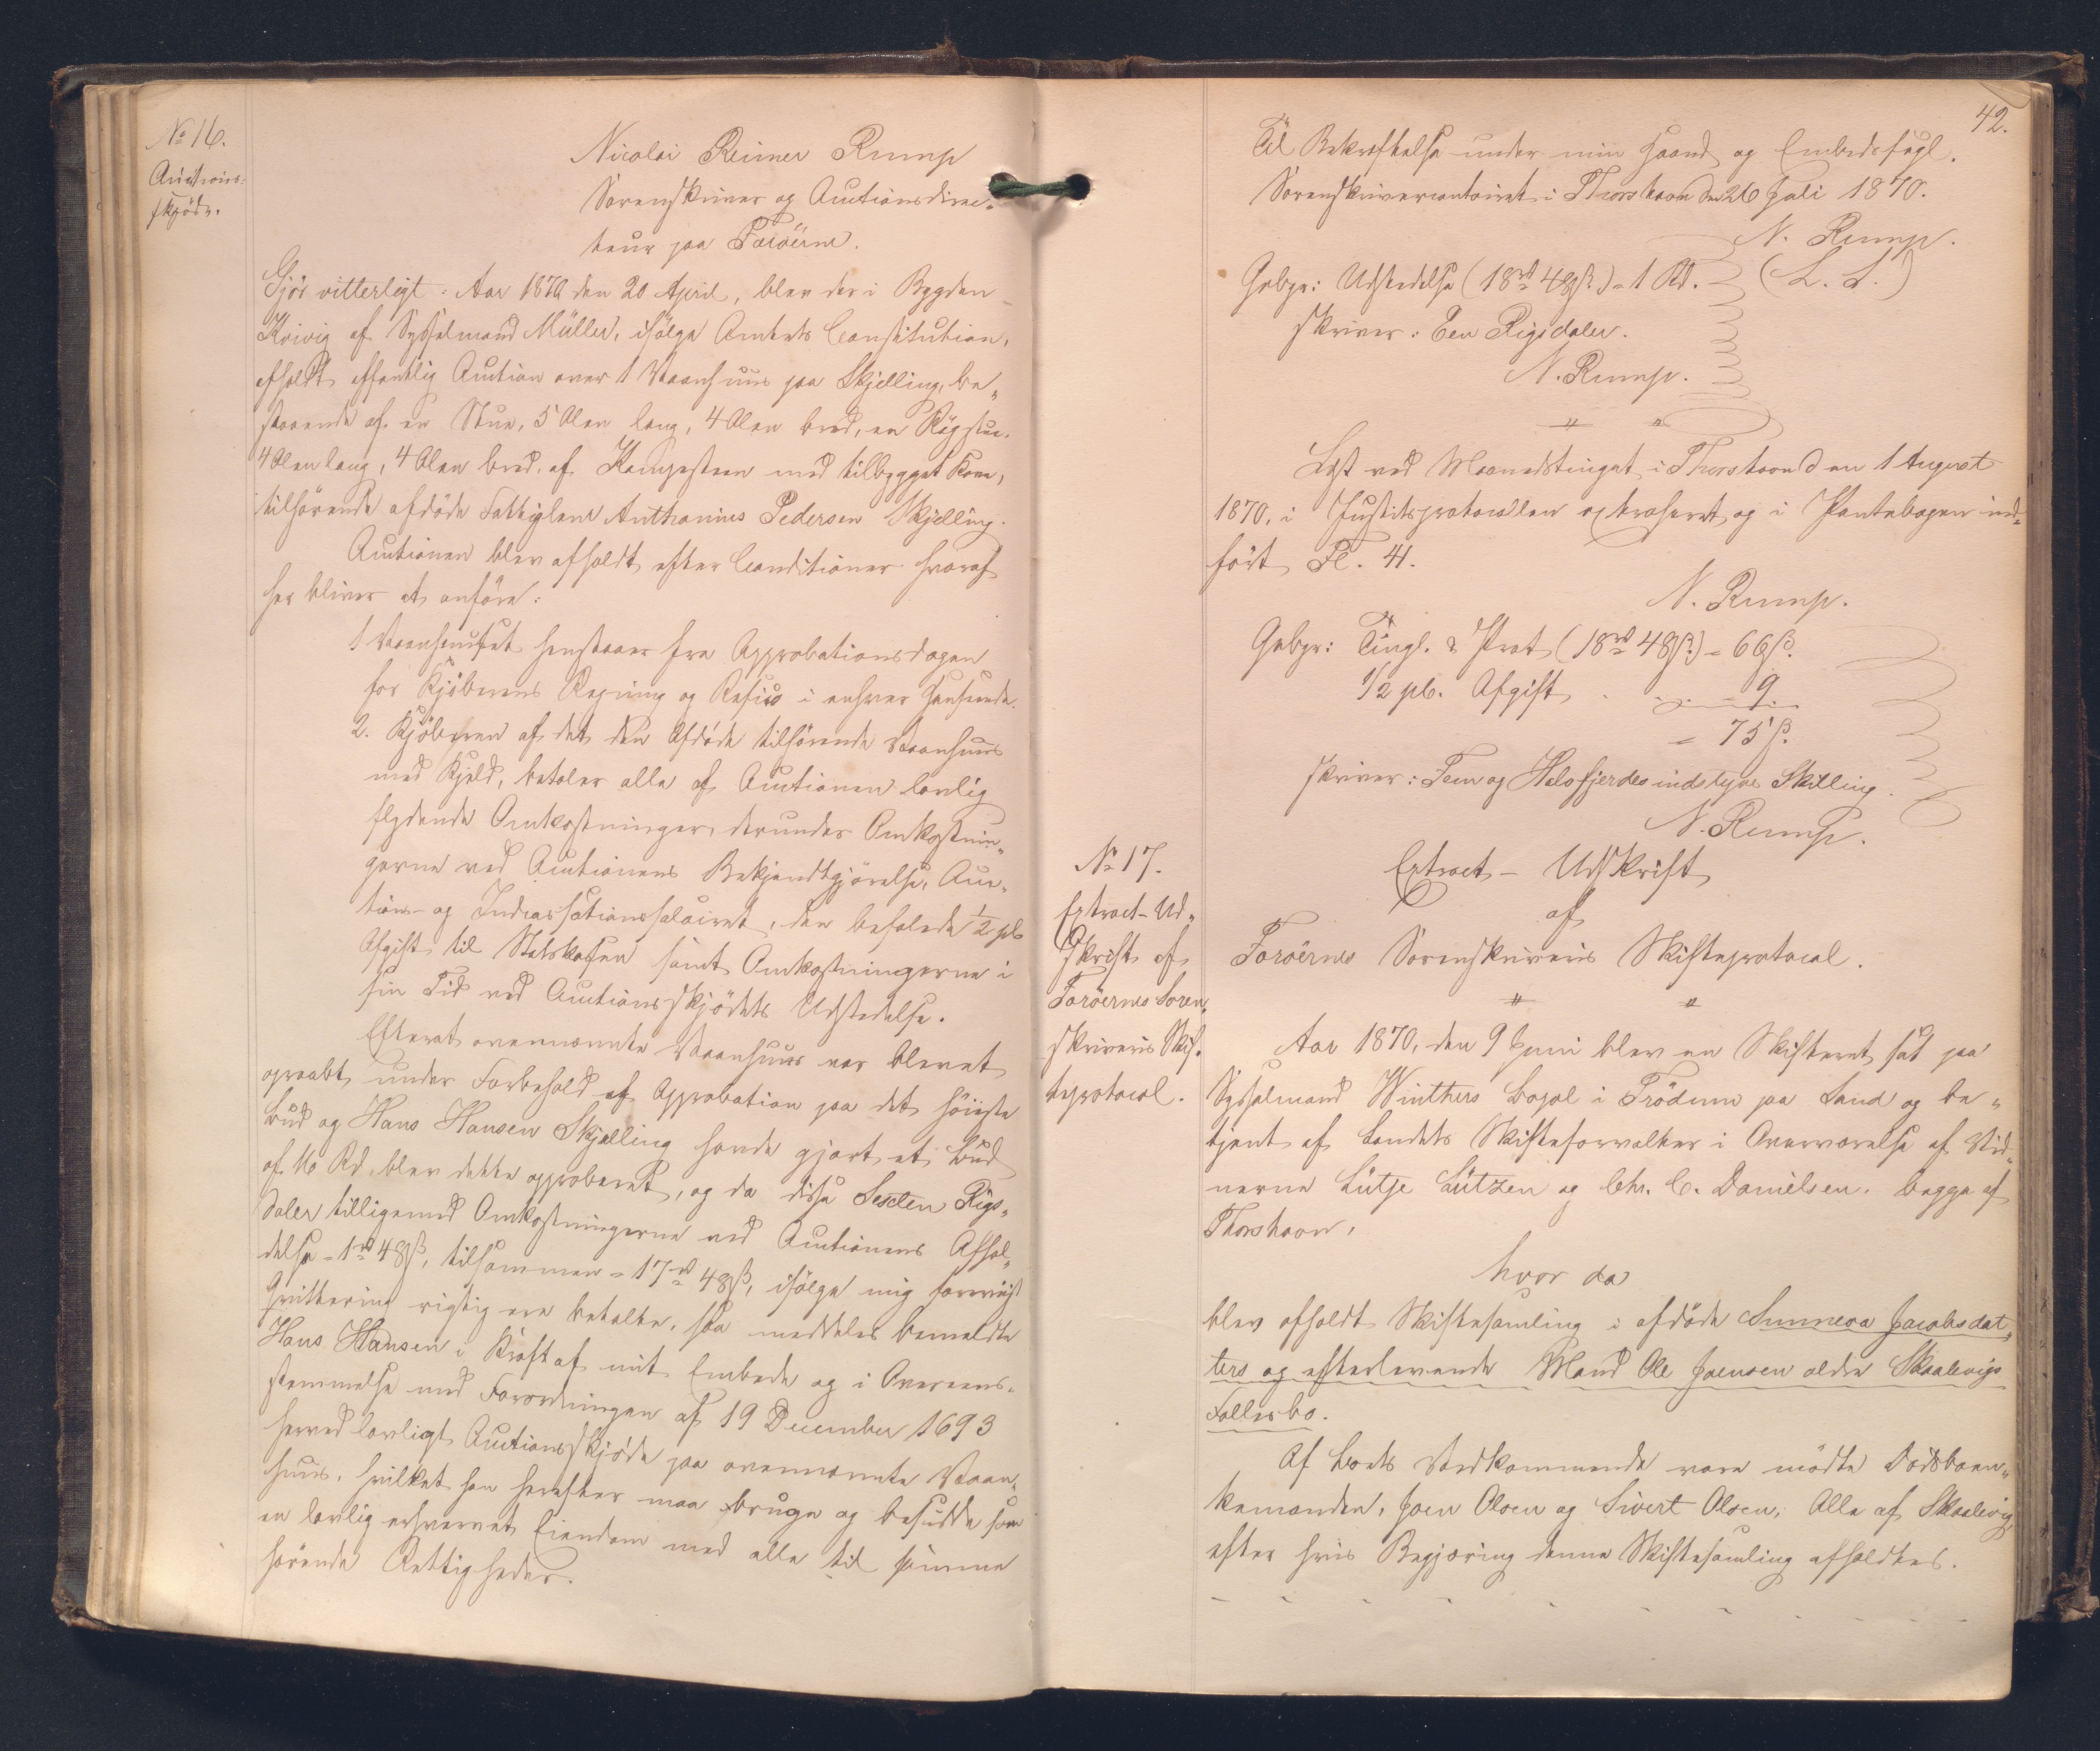 № 16.
Auctions-
skjöde.
Nicolai Reimer Rump
Sorenskriver og Auctionsdirec-
teur paa Færöerne.
Gjör vitterligt: Aar 1870 den 20 April, blev der i Bygden
Kvivig af Sysselmand Müller, ifölge Amtets Constitution,
afholdt offentlig Auction over 1 Vaanhuus paa Skjelling, be-
staaende af en Stue, 5 Alen lang, 4 Alen bred, en Rögstue,
4 Alen lang, 4 Alen bred, af Kampesteen med tilbygget Kove,
tilhörende afdöde Fattiglem Anthonius Pedersen Skjelling.
Auctionen blev afholdt efter Conditioner hvoraf
her bliver at anföre:
1 Vaanhuuset henstaaer fra Approbationsdagen
for Kjöberens Regning og Resico i enhver Henseende.
2. Kjöberen af det den Afdöde tilhörende Vaanhuus
med Kjeld, betaler alle af Auctionen lovlig
flydende Omkostninger, derunder Omkostnin-
gerne ved Auctionens Bekjendtgjörelse, Auc-
tions- og Indcassationssalairet, den befalede 1/2 pC
Afgift til Statskassen samt Omkostningerne i
sin Tid ved Auctionsskjödets Udstedelse.
Efterat ovennævnte Vaanhuus var blevet
opraabt under Forbehold af Approbation paa det höieste
Bud og Hans Hansen Skjelling havde gjort et Bud
af 16 Rd. blev dette approberet, og da disse Sexten Rigs-
daler tilligemed Omkostningerne ved Auctionens Afhol-
delse = 1 rd 48 ß, tilsammen = 17 rd 48 ß, ifölge mig foreviist
Qvittering rigtig ere betalte, saa meddeles bemeldte
Hans Hansen i Kraft af mit Embede og i Overeens-
stemmelse med Forordningen af 19 December 1693
herved lovligt Auctionsskjöde paa ovennævnte Vaan-
huus, hvilket han herefter maa bruge og besidde som
en lovlig erhvervet Eiendom med alle til samme
hörende Rettigheder.
42.
Til Bekræftelse under min Haand og Embedssegl.
Sorenskrivercontoiret i Thorshavn den 26 Juli 1870.
N. Rump.
(L. S.)
Gebyr: Udstedelse (18 rd 48 ß) = 1 Rd.
skriver: Een Rigsdaler.
N. Rump.
" "
Læst ved Maanedstinget i Thorshavn den 1 August
1870, i Justitsprotocollen extraheret og i Pantebogen ind-
fört Fol. 41.
N. Rump.
Gebyr: Tingl. & Prot (18 rd 48 ß) = 66 ß.
1/2 pC. Afgift . . . = 9.
= 75 ß.
skriver: Fem og Halvfjerdesindstyve Skilling.
N. Rump.
№ 17.
Extract-Ud-
skrift af
Færöernes Soren-
skriveries Skif-
teprotocol.
Extract-Udskrift
af
Færöernes Sorenskriveries Skifteprotocol.
" "
Aar 1870, den 9 Juni blev en Skifteret sat paa
Sysselmand Winthers Bopæl i Tröðum paa Sand og be-
tjent af Landets Skifteforvalter i Overværelse af Vid-
nerne Lütje Lützen og Chr. C. Danielsen, begge af
Thorshavn,
hvor da
blev afholdt Skiftesamling i afdöde Sunneva Jacobsdat-
ters og efterlevende Mand Ole Joensen ældre Skaalevigs
Fællesbo.
Af Boets Vedkommende vare mödte Dödsboen-
kemanden, Joen Olsen og Sivert Olsen, Alle af Skaalevig,
efter hvis Begjæring denne Skiftesamling afholdtes.